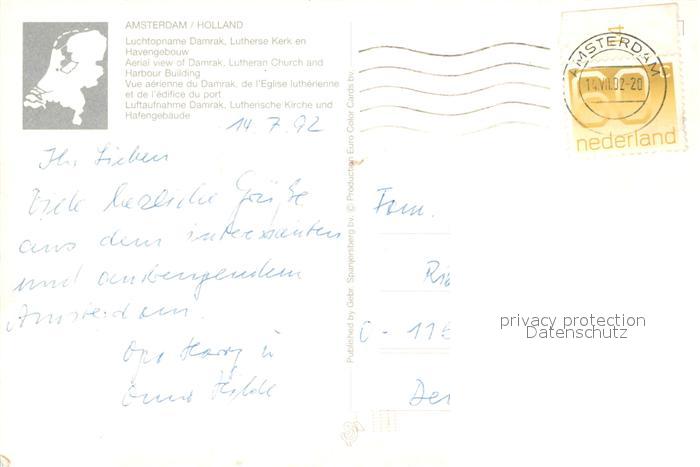 AMSTERDAM / HOLLAND
Luchtopname Damrak, Lutherse Kerk en
Havengebouw
Aerial view of Damrak, Lutheran Church and
Harbour Building
Vue aérienne du Damrak, de l'Eglise luthérienne
et de l'édifice du port
Luftaufnahme Damrak, Lutherische Kirche und
Hafengebäude
14.7.92
Ihr Lieben
Viele herzliche Grüße
aus dem interessanten
und anstrengenden
Amsterdam.
Opa Harry u
Oma Hilde
Published by Gebr. Spanjersberg bv. © Production Euro Color Cards bv.
AMSTERDAM
14.VII.92-20
60 c
nederland
Fam.
Ri
O - 115
De
privacy protection
Datenschutz